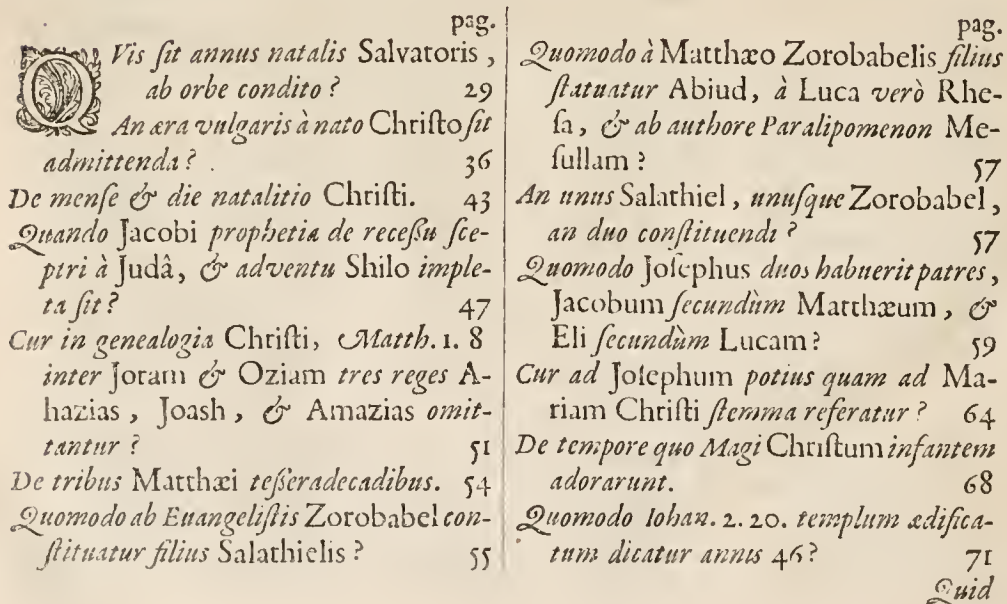 pag.
QVis ſit annus natalis Salvatoris,
ab orbe condito? 29
An æra vulgaris à nato Chriſto ſit
admittenda? 36
De menſe & die natalitio Chriſti. 43
Quando Jacobi prophetia de receſſu ſce-
ptri à Judâ, & adventu Shilo imple-
ta ſit? 47
Cur in genealogia Chriſti, Matth. 1. 8
inter Joram & Oziam tres reges A-
hazias, Joash, & Amazias omit-
tantur? 51
De tribus Matthæi teſſeradecadibus. 54
Quomodo ab Euangeliſtis Zorobabel con-
ſtituatur filius Salathielis? 55
pag.
Quomodo à Matthæo Zorobabelis filius
ſtatuatur Abiud, à Luca verò Rhe-
ſa, & ab authore Paralipomenon Me-
ſullam? 57
An unus Salathiel, unuſque Zorobabel,
an duo conſtituendi? 57
Quomodo Joſephus duos habuerit patres,
Jacobum ſecundùm Matthæum, &
Eli ſecundùm Lucam? 59
Cur ad Joſephum potius quam ad Ma-
riam Chriſti ſtemma referatur? 64
De tempore quo Magi Chriſtum infantem
adorarunt. 68
Quomodo Iohan. 2. 20. templum ædifica-
tum dicatur annis 46? 71
Quid